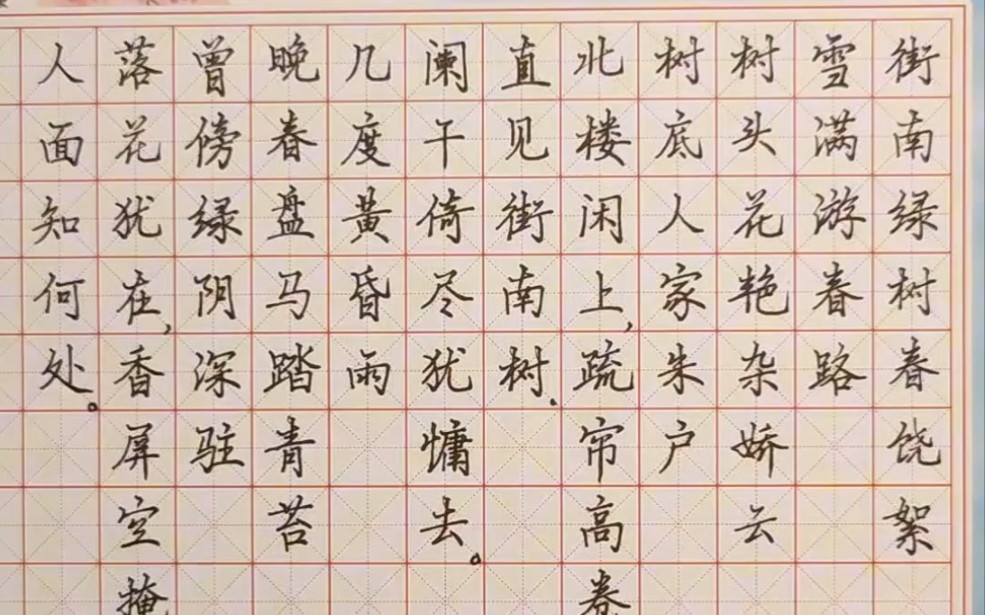 街南绿树春饶絮
雪满游春路
树头花艳杂娇云
树底人家朱户
北楼闲上,疏帘高卷
直见街南树.
阑干倚尽犹慵去。
几度黄昏雨
晚春盘马踏青苔
曾傍绿阴深驻
落花犹在,香屏空掩
人面知何处。